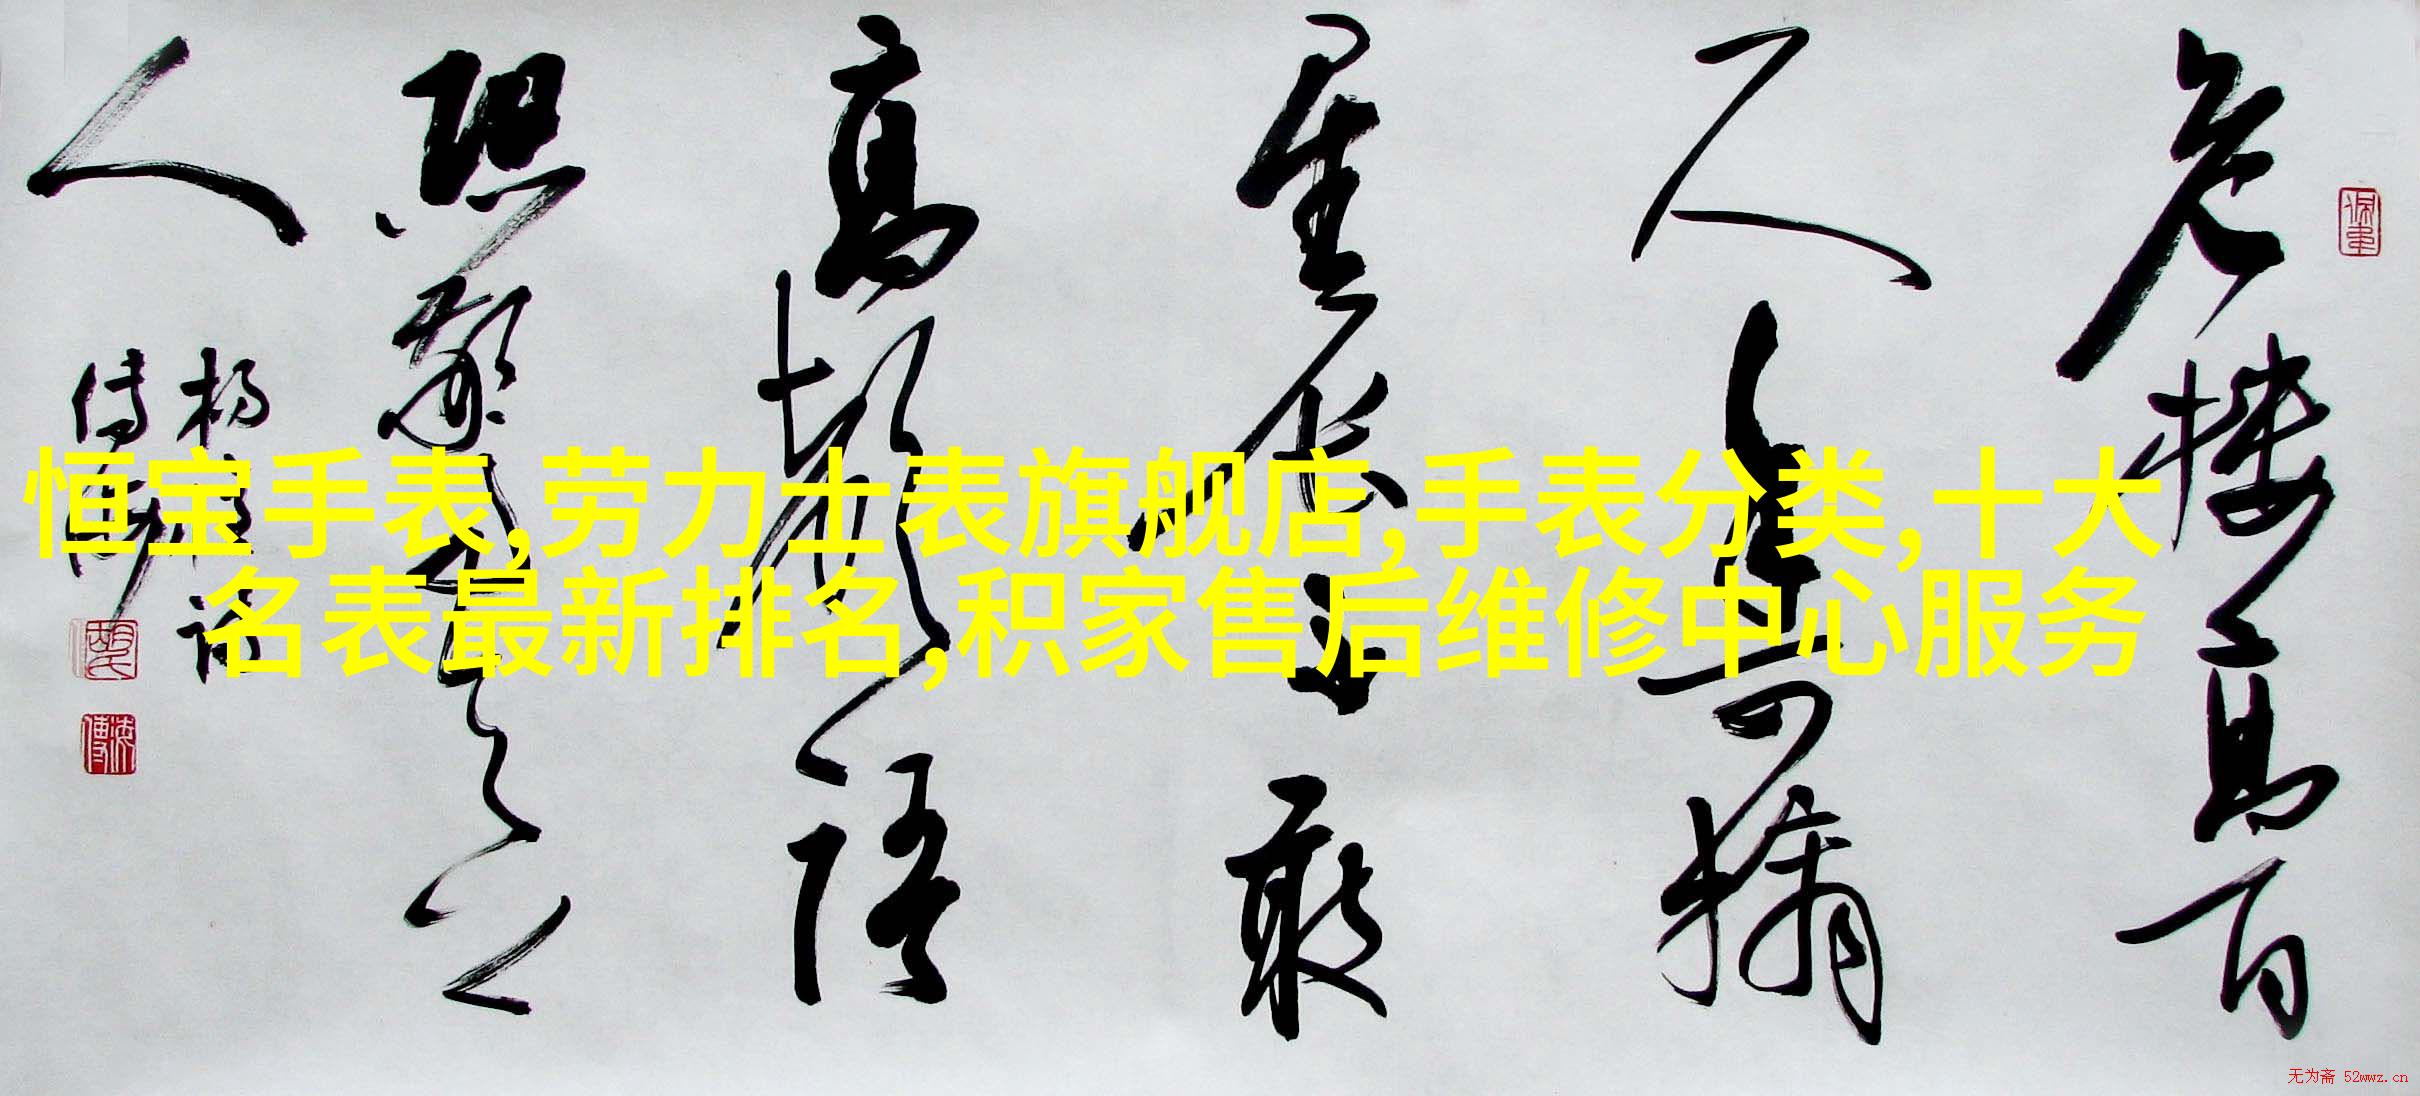 危楼高百
尺手可摘
星辰不敢
高聲語
恐驚天上
人
恒宝手表,劳力士表旗舰店,手表分类,十大
名表最新排名,积家售后维修中心服务
无为斋 52wwz.cn